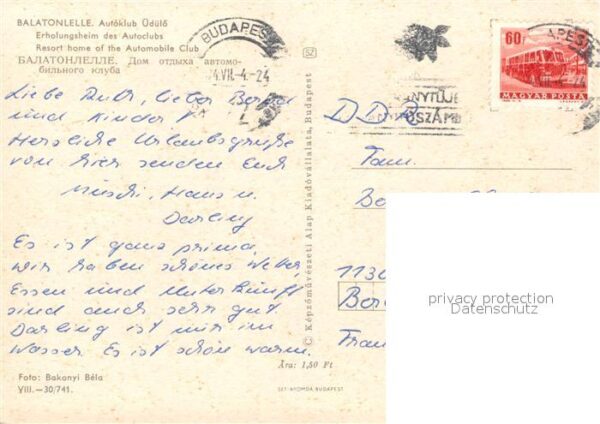 BALATONLELLE. Autóklub Üdülő
Erholungsheim des Autoclubs
Resort home of the Automobile Club
БАЛАТОНЛЕЛЛЕ. Дом отдыха автомо-
бильного клуба
Liebe Ruth, lieber Bernd
und Kinder!
Herzliche Urlaubsgrüße
von hier senden Euch
Hans u.
Darling
Es ist ganz prima,
wir haben schönes Wetter,
Essen und Unterkunft
sind auch sehr gut
Darling ist mit im
Wasser. Es ist schön warm.
Foto: Bakonyi Béla
VIII.—30/741.
Ára: 1,50 Ft
SZ
© Képzőművészeti Alap Kiadóvállalata, Budapest
SZT-NYOMDA BUDAPEST
BUDAPES
74.VII.-4.-24
60f
MAGYAR POSTA
APEST
DDR
Fam.
1130
Ber
Fran
privacy protection
Datenschutz